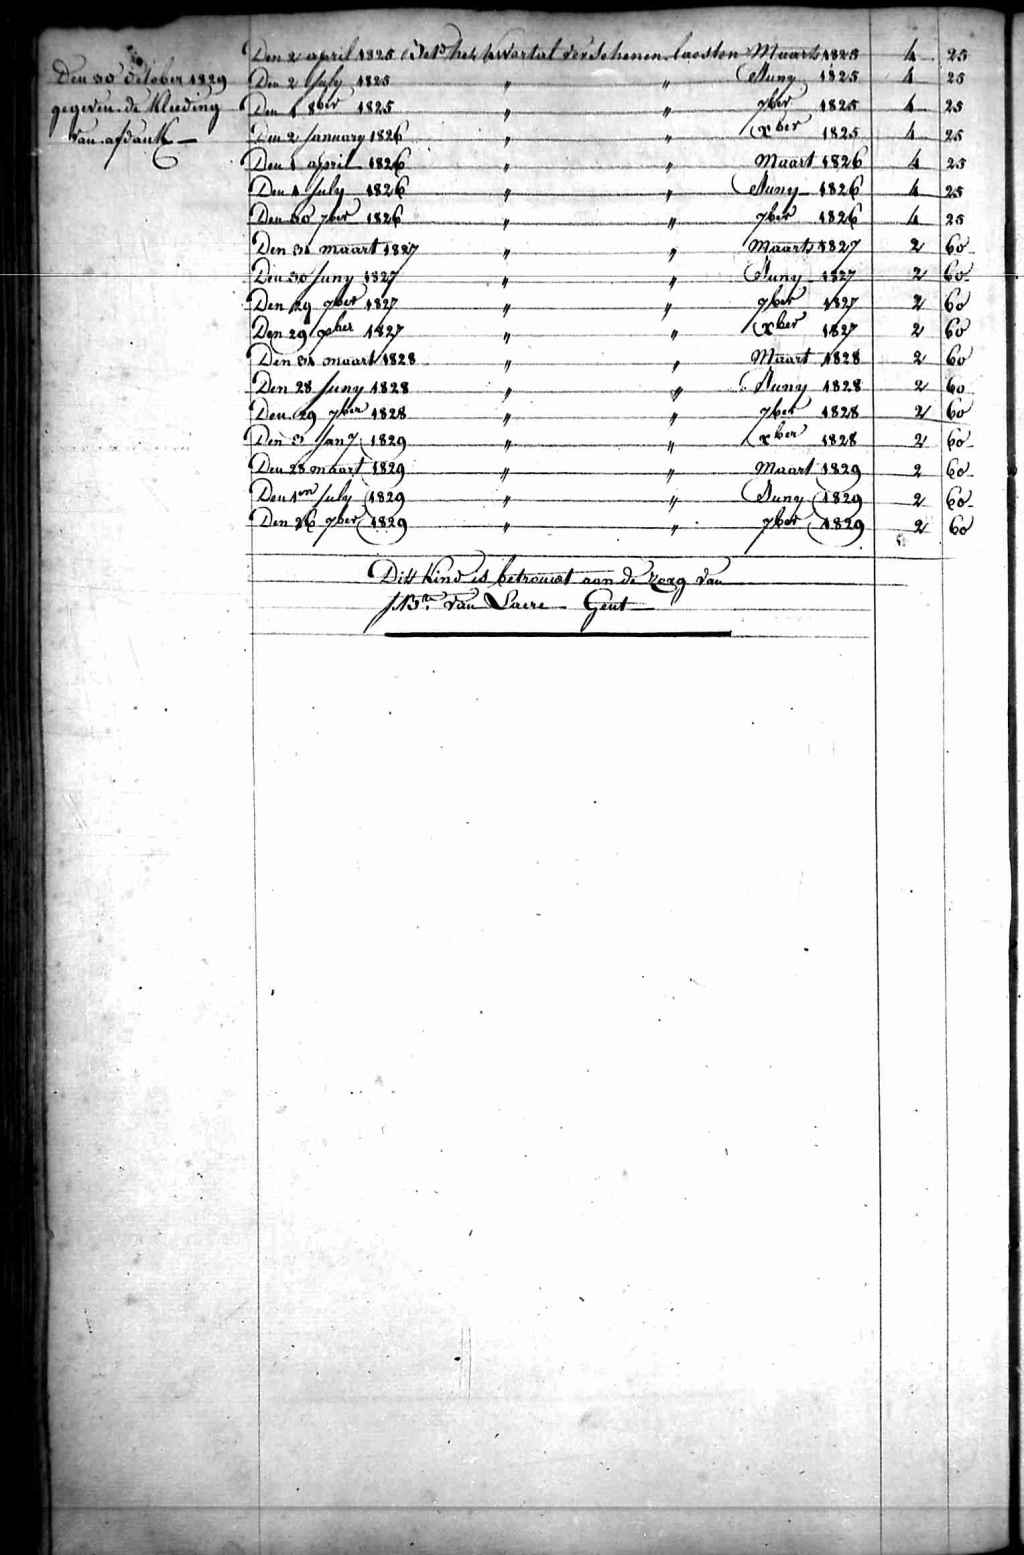 Den 30 October 1829
gegeven de kleeding
van afdank
Den 2 april 1825 Bet.d het kwartal verschenen laasten Maart 1825 4 25
Den 2 July 1825 " " Juny 1825 4 25
Den 1 8ber 1825 " " 7ber 1825 4 25
Den 2 January 1826 " " xber 1825 4 25
Den 1 april 1826 " " Maart 1826 4 25
Den 1 July 1826 " " Juny 1826 4 25
Den 30 7ber 1826 " " 7ber 1826 4 25
Den 31 maart 1827 " " Maart 1827 2 60
Den 30 Juny 1827 " " Juny 1827 2 60
Den 29 7ber 1827 " " 7ber 1827 2 60
Den 29 xber 1827 " " xber 1827 2 60
Den 31 maart 1828 " " Maart 1828 2 60
Den 28 Juny 1828 " " Juny 1828 2 60
Den 29 7ber 1828 " " 7ber 1828 2 60
Den 3 Jany 1829 " " xber 1828 2 60
Den 28 maart 1829 " " Maart 1829 2 60
Den 1en July 1829 " " Juny 1829 2 60
Den 26 7ber 1829 " " 7ber 1829 2 60
Dit kind is betrouwt aan de zorg van
J.Bte van Laere Gent